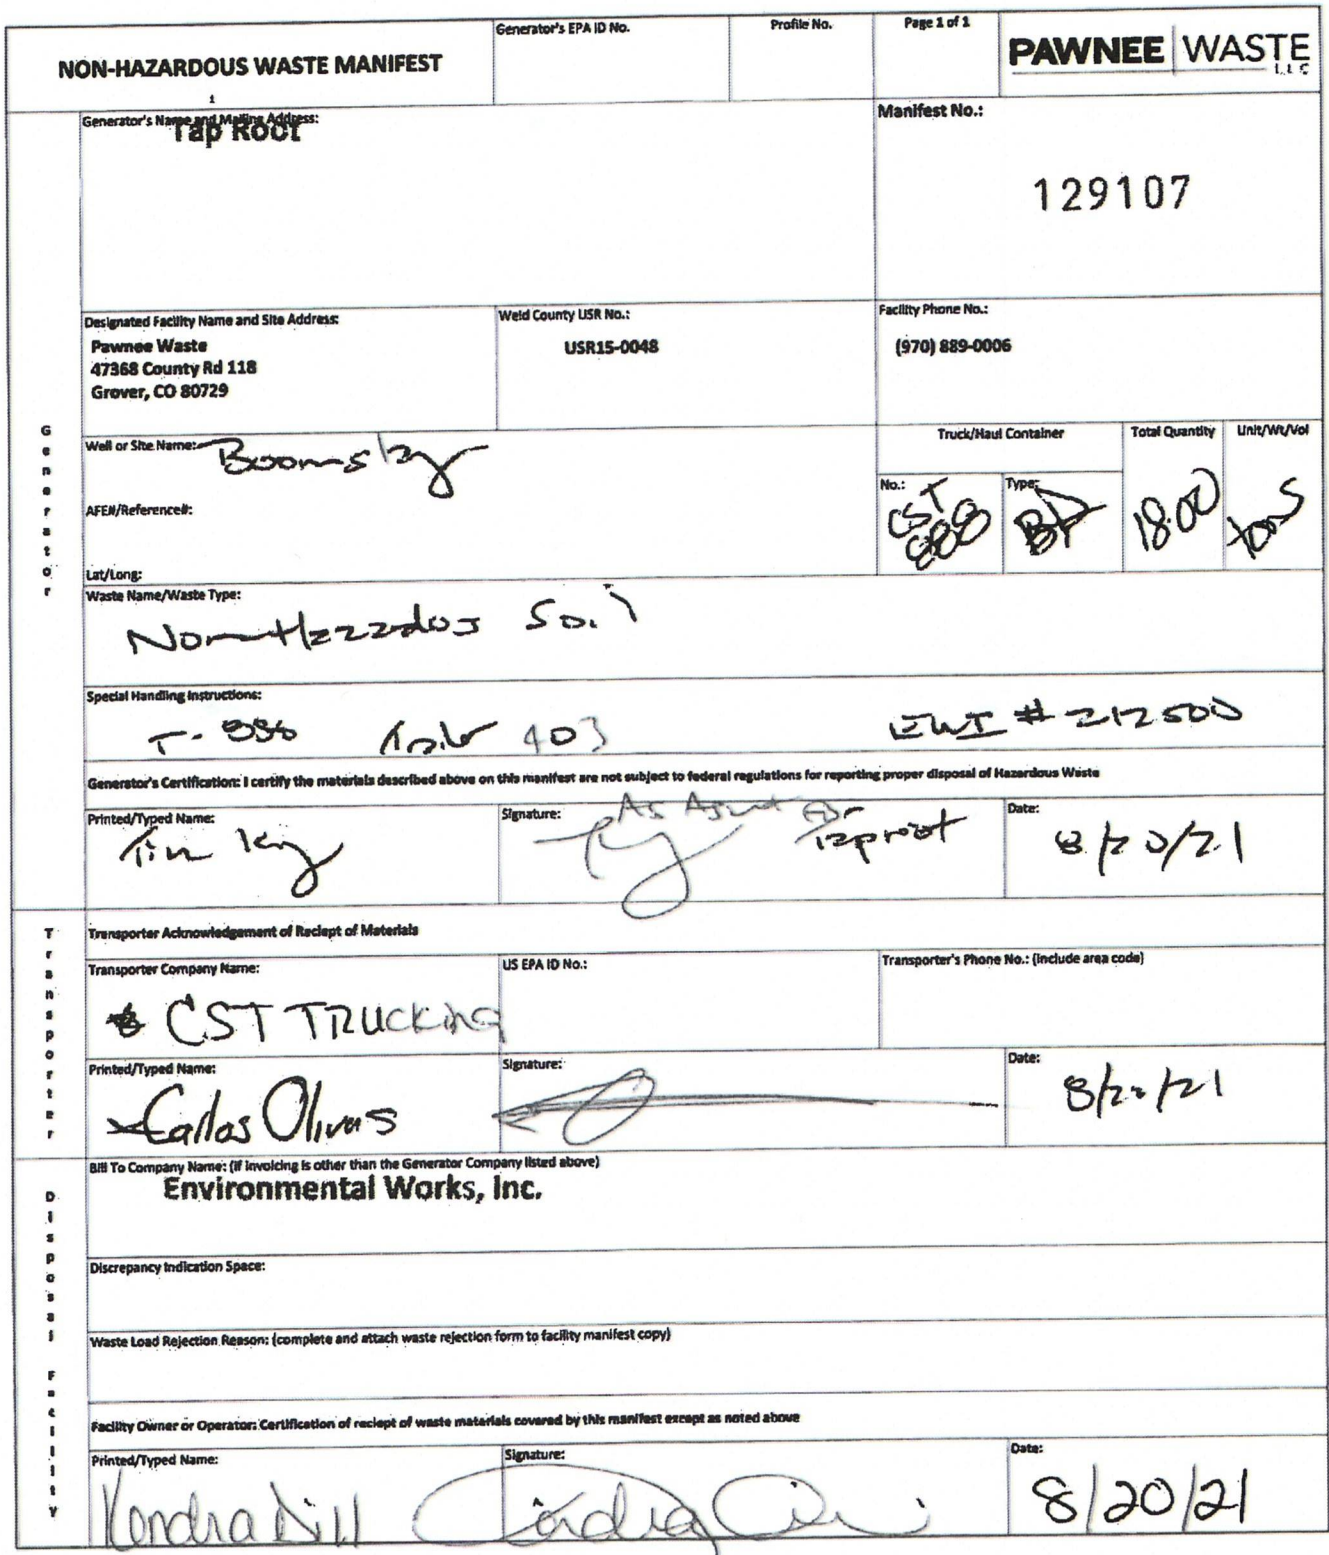 NON-HAZARDOUS WASTE MANIFEST
1
Generator's EPA ID No.
Profile No.
Page 1 of 1
PAWNEE WASTE
LLC
Generator's Name and Mailing Address:
Tap Root
Manifest No.:
129107
Designated Facility Name and Site Address:
Pawnee Waste
47368 County Rd 118
Grover, CO 80729
Weld County USR No.:
USR15-0048
Facility Phone No.:
(970) 889-0006
Generator
Well or Site Name:
AFE#/Reference#:
Lat/Long:
Truck/Haul Container
No.: CST 888
Type:
Total Quantity
18.00
Unit/Wt/Vol
tons
Waste Name/Waste Type:
Non-Hazzados Soil
Special Handling Instructions:
T-886 403 EWI # 212500
Generator's Certification: I certify the materials described above on this manifest are not subject to federal regulations for reporting proper disposal of Hazardous Waste
Printed/Typed Name:
Tim King
Signature:
As Agent for Taproot
Date:
8/20/21
Transporter
Transporter Acknowledgement of Reciept of Materials
Transporter Company Name:
CST TRUCKING
US EPA ID No.:
Transporter's Phone No.: (include area code)
Printed/Typed Name:
Carlos Olivas
Signature:
Date:
8/20/21
Disposal Facility
Bill To Company Name: (if invoicing is other than the Generator Company listed above)
Environmental Works, Inc.
Discrepancy Indication Space:
Waste Load Rejection Reason: (complete and attach waste rejection form to facility manifest copy)
Facility Owner or Operator: Certification of reciept of waste materials covered by this manifest except as noted above
Printed/Typed Name:
Kendra Dill
Signature:
Date:
8/20/21